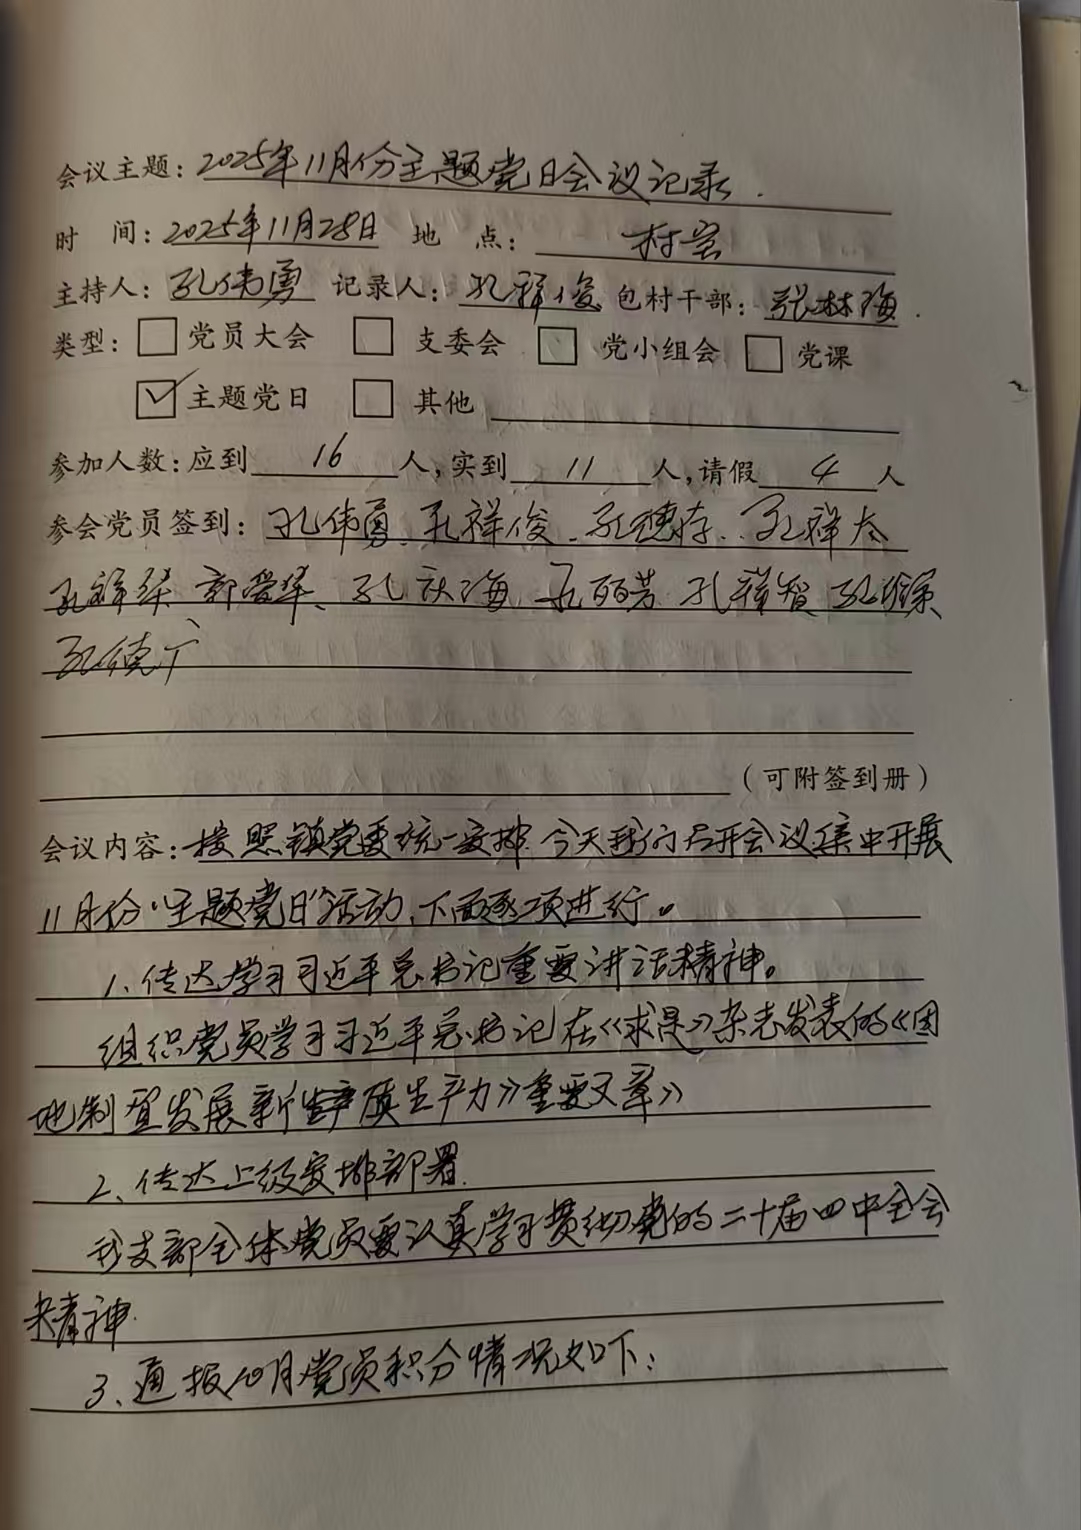 会议主题：2025年11月份主题党日会议记录.
时 间：2025年11月28日 地 点：村室
主持人：孔伟勇 记录人：孔祥俊 包村干部：张林海.
类型：□党员大会 □ 支委会 □ 党小组会 □ 党课
☑主题党日 □ 其他
参加人数：应到 16 人，实到 11 人，请假 4 人
参会党员签到：孔伟勇、孔祥俊、孔德存、孔祥太
孔祥华 郭爱华、孔庆海 孔丽芳 孔祥智
孔德广
（可附签到册）
会议内容：按照镇党委统一安排 今天我们召开会议集中开展
11月份“主题党日”活动，下面逐项进行。
1、传达学习习近平总书记重要讲话精神。
组织党员学习习近平总书记在《求是》杂志发表的《因
地制宜发展新质生产力》重要文章》
2、传达上级安排部署.
我支部全体党员要认真学习贯彻党的二十届四中全会
精神.
3、通报10月党员积分情况如下：